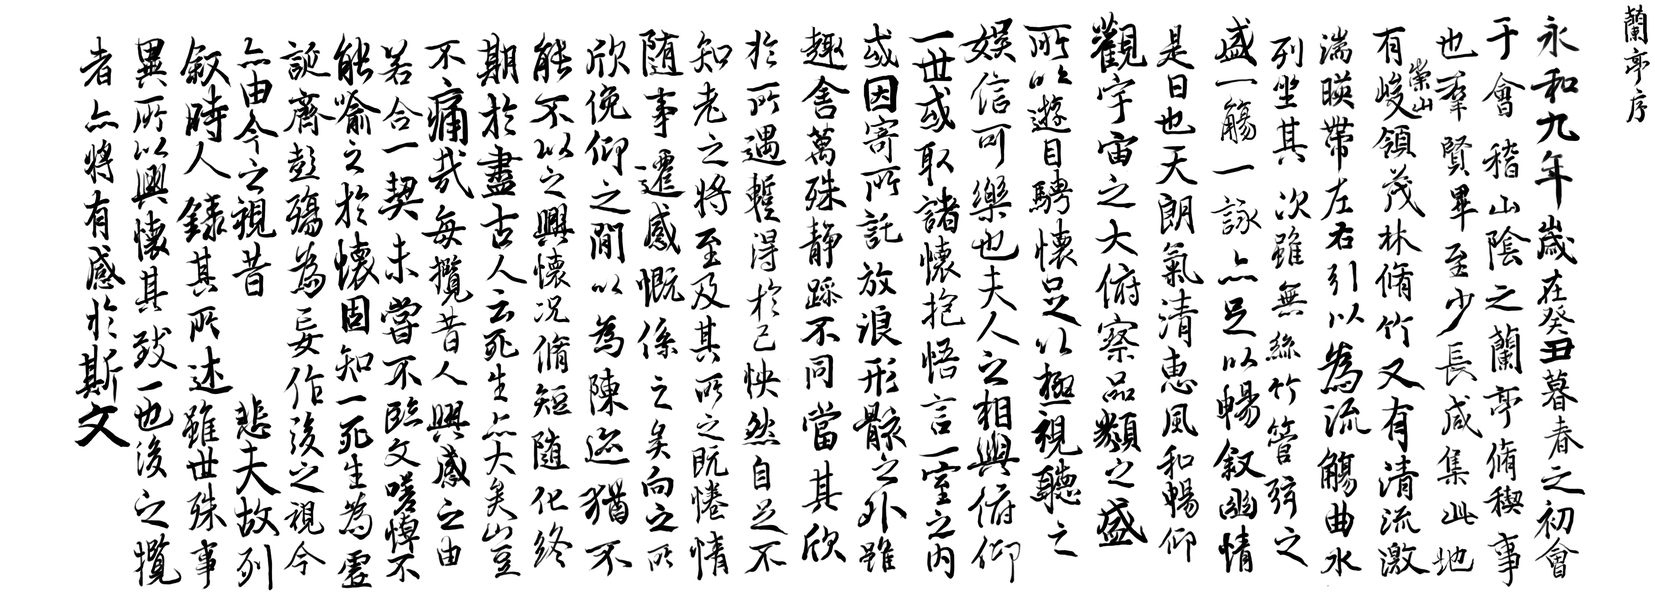 蘭亭序
永和九年歲在癸丑暮春之初會
于會稽山陰之蘭亭脩稧事
也羣賢畢至少長咸集此地
有崇山峻領茂林脩竹又有清流激
湍暎帶左右引以為流觴曲水
列坐其次雖無絲竹管弦之
盛一觴一詠亦足以暢敘幽情
是日也天朗氣清惠風和暢仰
觀宇宙之大俯察品類之盛
所以遊目騁懷足以極視聽之
娛信可樂也夫人之相與俯仰
一世或取諸懷抱悟言一室之內
或因寄所託放浪形骸之外雖
趣舍萬殊靜躁不同當其欣
於所遇蹔得於己怏然自足不
知老之將至及其所之既惓情
随事遷感慨係之矣向之所
欣俛仰之閒以為陳迹猶不
能不以之興懷況脩短随化終
期於盡古人云死生亦大矣豈
不痛哉每攬昔人興感之由
若合一契未嘗不臨文嗟悼不
能喻之於懷固知一死生為虛
誕齊彭殤為妄作後之視今
亦由今之視昔 悲夫故列
敘時人錄其所述雖世殊事
異所以興懷其致一也後之攬
者亦將有感於斯文